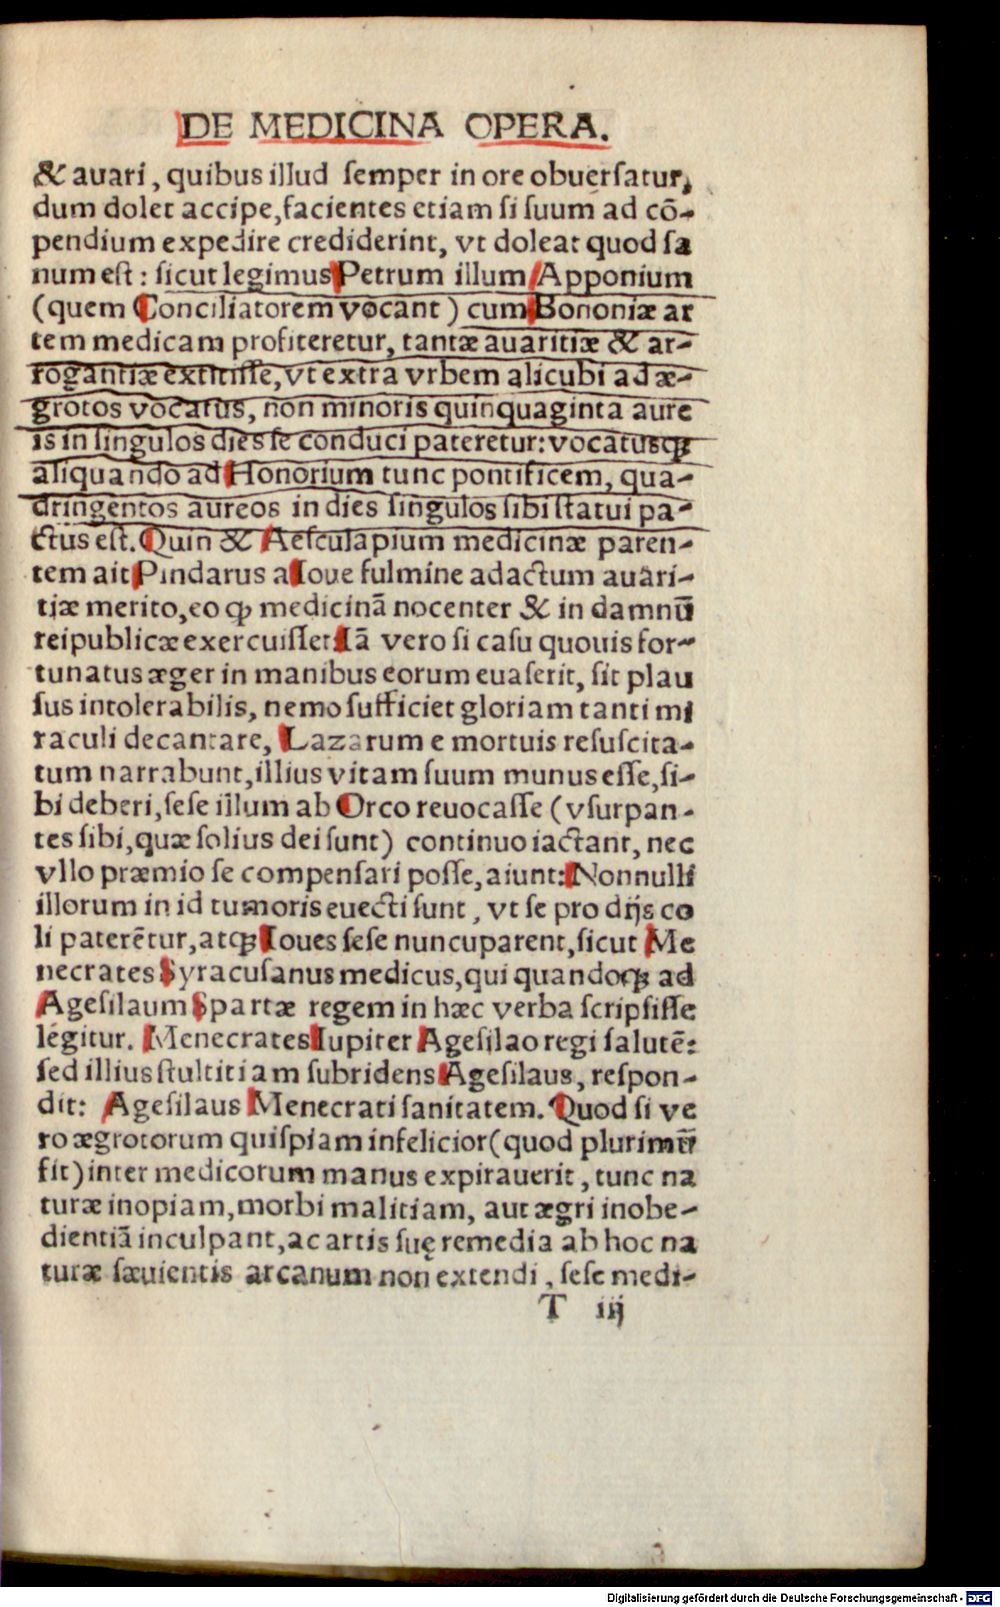 DE MEDICINA OPERA.
& auari, quibus illud semper in ore obuersatur,
dum dolet accipe, facientes etiam si suum ad cō-
pendium expedire crediderint, vt doleat quod sa
num est: sicut legimus Petrum illum Apponium
(quem Conciliatorem vocant) cum Bononiæ ar
tem medicam profiteretur, tantæ auaritiæ & ar-
rogantiæ extitisse, vt extra vrbem alicubi ad æ-
grotos vocatus, non minoris quinquaginta aure
is in singulos dies se conduci pateretur: vocatusqȝ
aliquando ad Honorium tunc pontificem, qua-
dringentos aureos in dies singulos sibi statui pa-
ctus est. Quin & Aesculapium medicinæ paren-
tem ait Pindarus a Ioue fulmine adactum auari-
tiæ merito, eo ꝙ medicinā nocenter & in damnū
reipublicæ exercuisset Iā vero si casu quouis for-
tunatus æger in manibus eorum euaserit, sit plau
sus intolerabilis, nemo sufficiet gloriam tanti mi
raculi decantare, Lazarum e mortuis resuscita-
tum narrabunt, illius vitam suum munus esse, si-
bi deberi, sese illum ab Orco reuocasse (vsurpan-
tes sibi, quæ solius dei sunt) continuo iactant, nec
vllo præmio se compensari posse, aiunt: Nonnulli
illorum in id tumoris euecti sunt, vt se pro dijs co
li paterētur, atqȝ Ioues sese nuncuparent, sicut Me
necrates Syracusanus medicus, qui quandoqȝ ad
Agesilaum Spartæ regem in hæc verba scripsisse
legitur. Menecrates Iupiter Agesilao regi salutē:
sed illius stultitiam subridens Agesilaus, respon-
dit: Agesilaus Menecrati sanitatem. Quod si ve
ro ægrotorum quispiam infelicior (quod plurimū
fit) inter medicorum manus expirauerit, tunc na
turæ inopiam, morbi malitiam, aut ægri inobe-
dientiā inculpant, ac artis suę remedia ab hoc na
turæ sæuientis arcanum non extendi, sese medi-
T iij
Digitalisierung gefördert durch die Deutsche Forschungsgemeinschaft - DFG